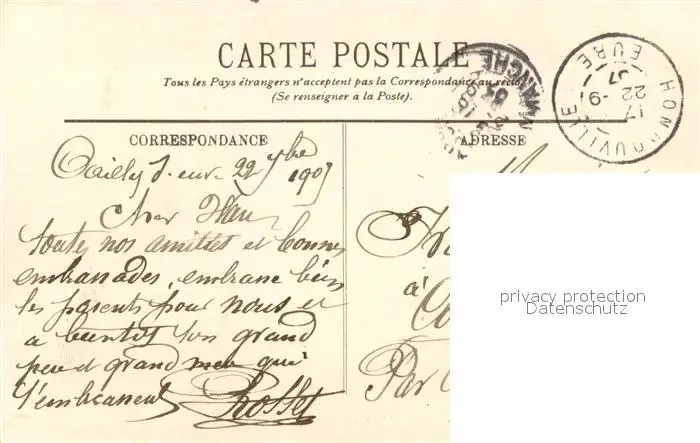 CARTE POSTALE
Tous les Pays étrangers n'acceptent pas la Correspondance au recto
(Se renseigner à la Poste).
HONDOUVILLE
EURE
17
22 -9
07
MANCHE
CORRESPONDANCE
ADRESSE
Cailly s. eure 22 7bre
1907
Cher
toutes nos amitiés et bonnes
embrassades, embrasse bien
les parents pour nous et
a bientot ton grand
pere et grand mere qui
t'embrassent
à
Par
privacy protection
Datenschutz